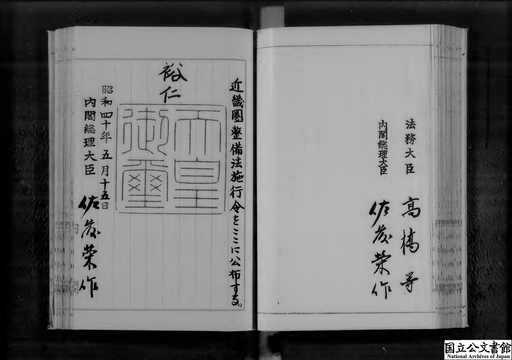 法務大臣 高橋等
内閣総理大臣 佐藤栄作
近畿圏整備法施行令をここに公布する。
裕仁
天皇御璽
昭和四十年五月十五日
内閣総理大臣 佐藤栄作
国立公文書館
National Archives of Japan